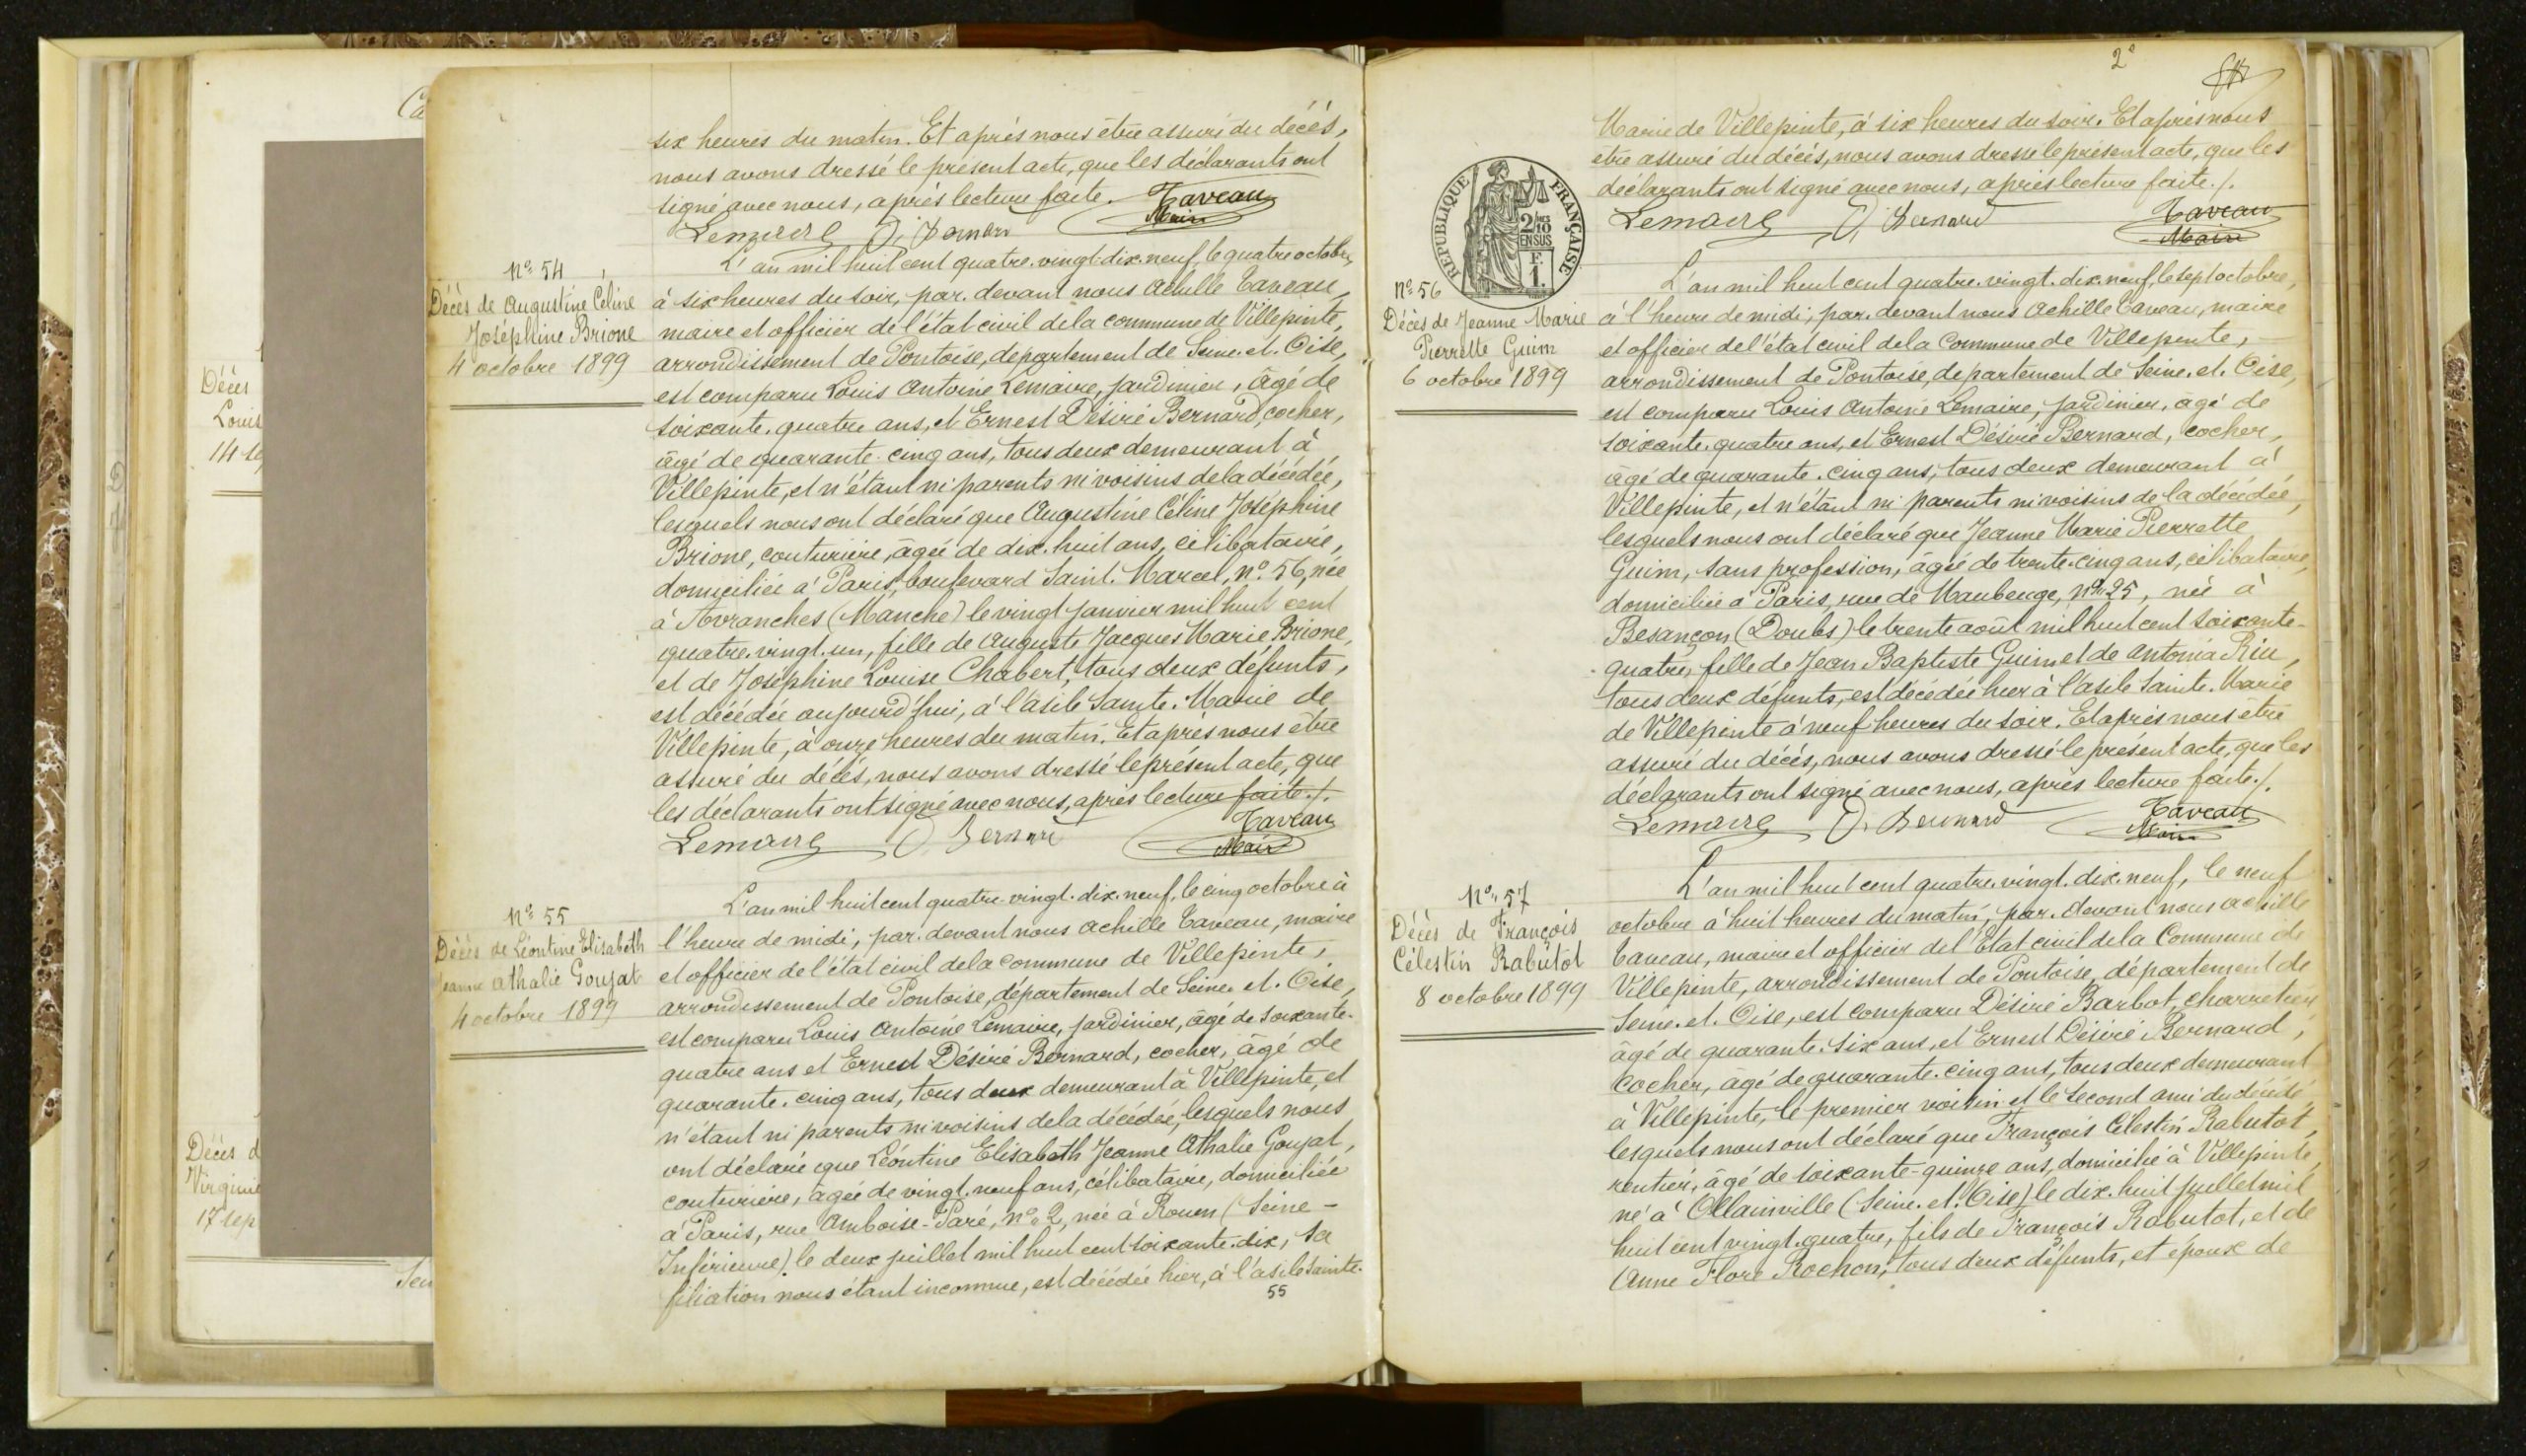 Ca
Décès
Louis
14 se
Décès d
Virginie
17 sep
six heures du matin. Et après nous être assuré du décès,
nous avons dressé le présent acte, que les déclarants ont
signé avec nous, après lecture faite. Taveau
Maire
Lemaire D. Bernard
N° 54
Décès de Augustine Céline
Joséphine Brione
4 octobre 1899
L'an mil huit cent quatre-vingt-dix-neuf, le quatre octobre,
à six heures du soir, par-devant nous Achille Taveau,
maire et officier de l'état civil de la commune de Villepinte,
arrondissement de Pontoise, département de Seine-et-Oise,
est comparu Louis Antoine Lemaire, jardinier, âgé de
soixante-quatre ans, et Ernest Désiré Bernard, cocher,
âgé de quarante-cinq ans, tous deux demeurant à
Villepinte, et n'étant ni parents ni voisins de la décédée,
lesquels nous ont déclaré que Augustine Céline Joséphine
Brione, couturière, âgée de dix-huit ans, célibataire,
domiciliée à Paris, boulevard Saint-Marcel, n° 56, née
à Avranches (Manche) le vingt janvier mil huit cent
quatre-vingt-un, fille de Auguste Jacques Marie Brione,
et de Joséphine Louise Chabert, tous deux défunts,
est décédée aujourd'hui, à l'asile Sainte-Marie de
Villepinte, à onze heures du matin. Et après nous être
assuré du décès, nous avons dressé le présent acte, que
les déclarants ont signé avec nous, après lecture faite./.
Lemaire D. Bernard Taveau
Maire
N° 55
Décès de Léontine Elisabeth
Jeanne Athalie Goujat
4 octobre 1899
L'an mil huit cent quatre-vingt-dix-neuf, le cinq octobre à
l'heure de midi, par-devant nous Achille Taveau, maire
et officier de l'état civil de la commune de Villepinte,
arrondissement de Pontoise, département de Seine-et-Oise,
est comparu Louis Antoine Lemaire, jardinier, âgé de soixante-
quatre ans et Ernest Désiré Bernard, cocher, âgé de
quarante-cinq ans, tous deux demeurant à Villepinte, et
n'étant ni parents ni voisins de la décédée, lesquels nous
ont déclaré que Léontine Elisabeth Jeanne Athalie Goujat,
couturière, âgée de vingt-neuf ans, célibataire, domiciliée
à Paris, rue Amboise-Paré, n° 2, née à Rouen (Seine-
Inférieure) le deux juillet mil huit cent soixante-dix, sa
filiation nous étant inconnue, est décédée hier, à l'asile Sainte-
55
2e
Marie de Villepinte, à six heures du soir. Et après nous
être assuré du décès, nous avons dressé le présent acte, que les
déclarants ont signé avec nous, après lecture faite./.
Lemaire D. Bernard Taveau
Maire
RÉPUBLIQUE FRANÇAISE
2/10
EN SUS
F.
1.
N° 56
Décès de Jeanne Marie
Pierrette Guim
6 octobre 1899
L'an mil huit cent quatre-vingt-dix-neuf, le sept octobre,
à l'heure de midi, par-devant nous Achille Taveau, maire
et officier de l'état civil de la Commune de Villepinte,
arrondissement de Pontoise, département de Seine-et-Oise,
est comparu Louis Antoine Lemaire, jardinier, âgé de
soixante-quatre ans, et Ernest Désiré Bernard, cocher,
âgé de quarante-cinq ans, tous deux demeurant à
Villepinte, et n'étant ni parents ni voisins de la décédée,
lesquels nous ont déclaré que Jeanne Marie Pierrette
Guim, sans profession, âgée de trente-cinq ans, célibataire,
domiciliée à Paris, rue de Maubeuge, n° 25, née à
Besançon (Doubs) le trente août mil huit cent soixante-
quatre, fille de Jean Baptiste Guim et de Antonia Riu,
tous deux défunts, est décédée hier à l'asile Sainte-Marie
de Villepinte à neuf heures du soir. Et après nous être
assuré du décès, nous avons dressé le présent acte, que les
déclarants ont signé avec nous, après lecture faite./.
Lemaire D. Bernard Taveau
Maire
N° 57
Décès de François
Célestin Rabutot
8 octobre 1899
L'an mil huit cent quatre-vingt-dix-neuf, le neuf
octobre à huit heures du matin, par-devant nous Achille
Taveau, maire et officier de l'Etat civil de la Commune de
Villepinte, arrondissement de Pontoise, département de
Seine-et-Oise, est comparu Désiré Barbot, charretier
âgé de quarante-six ans, et Ernest Désiré Bernard,
cocher, âgé de quarante-cinq ans, tous deux demeurant
à Villepinte, le premier voisin et le second ami du décédé,
lesquels nous ont déclaré que François Célestin Rabutot,
rentier, âgé de soixante-quinze ans, domicilié à Villepinte,
né à Ollainville (Seine-et-Oise) le dix-huit juillet mil
huit cent vingt-quatre, fils de François Rabutot, et de
Anne Flore Rochon, tous deux défunts, et époux de